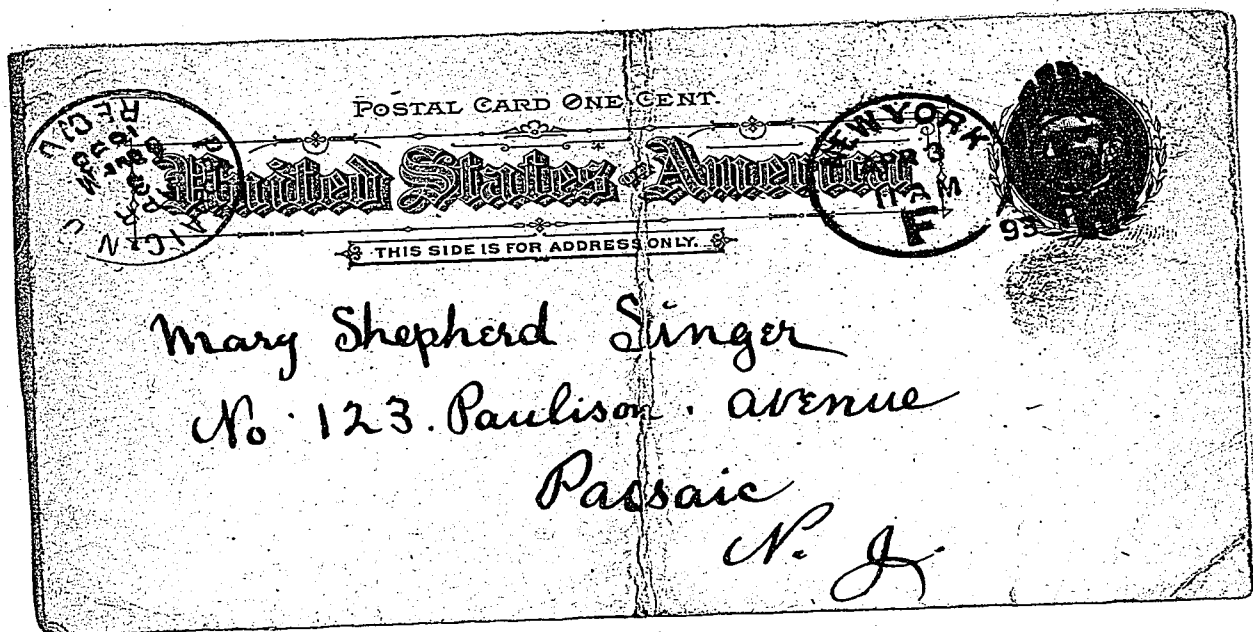 POSTAL CARD ONE CENT.
United States OF America
THIS SIDE IS FOR ADDRESS ONLY.
NEW YORK
APR 3
11 AM
93
F
REC'D.
Mary Shepherd Singer
No. 123. Paulison. avenue
Passaic
N. J.